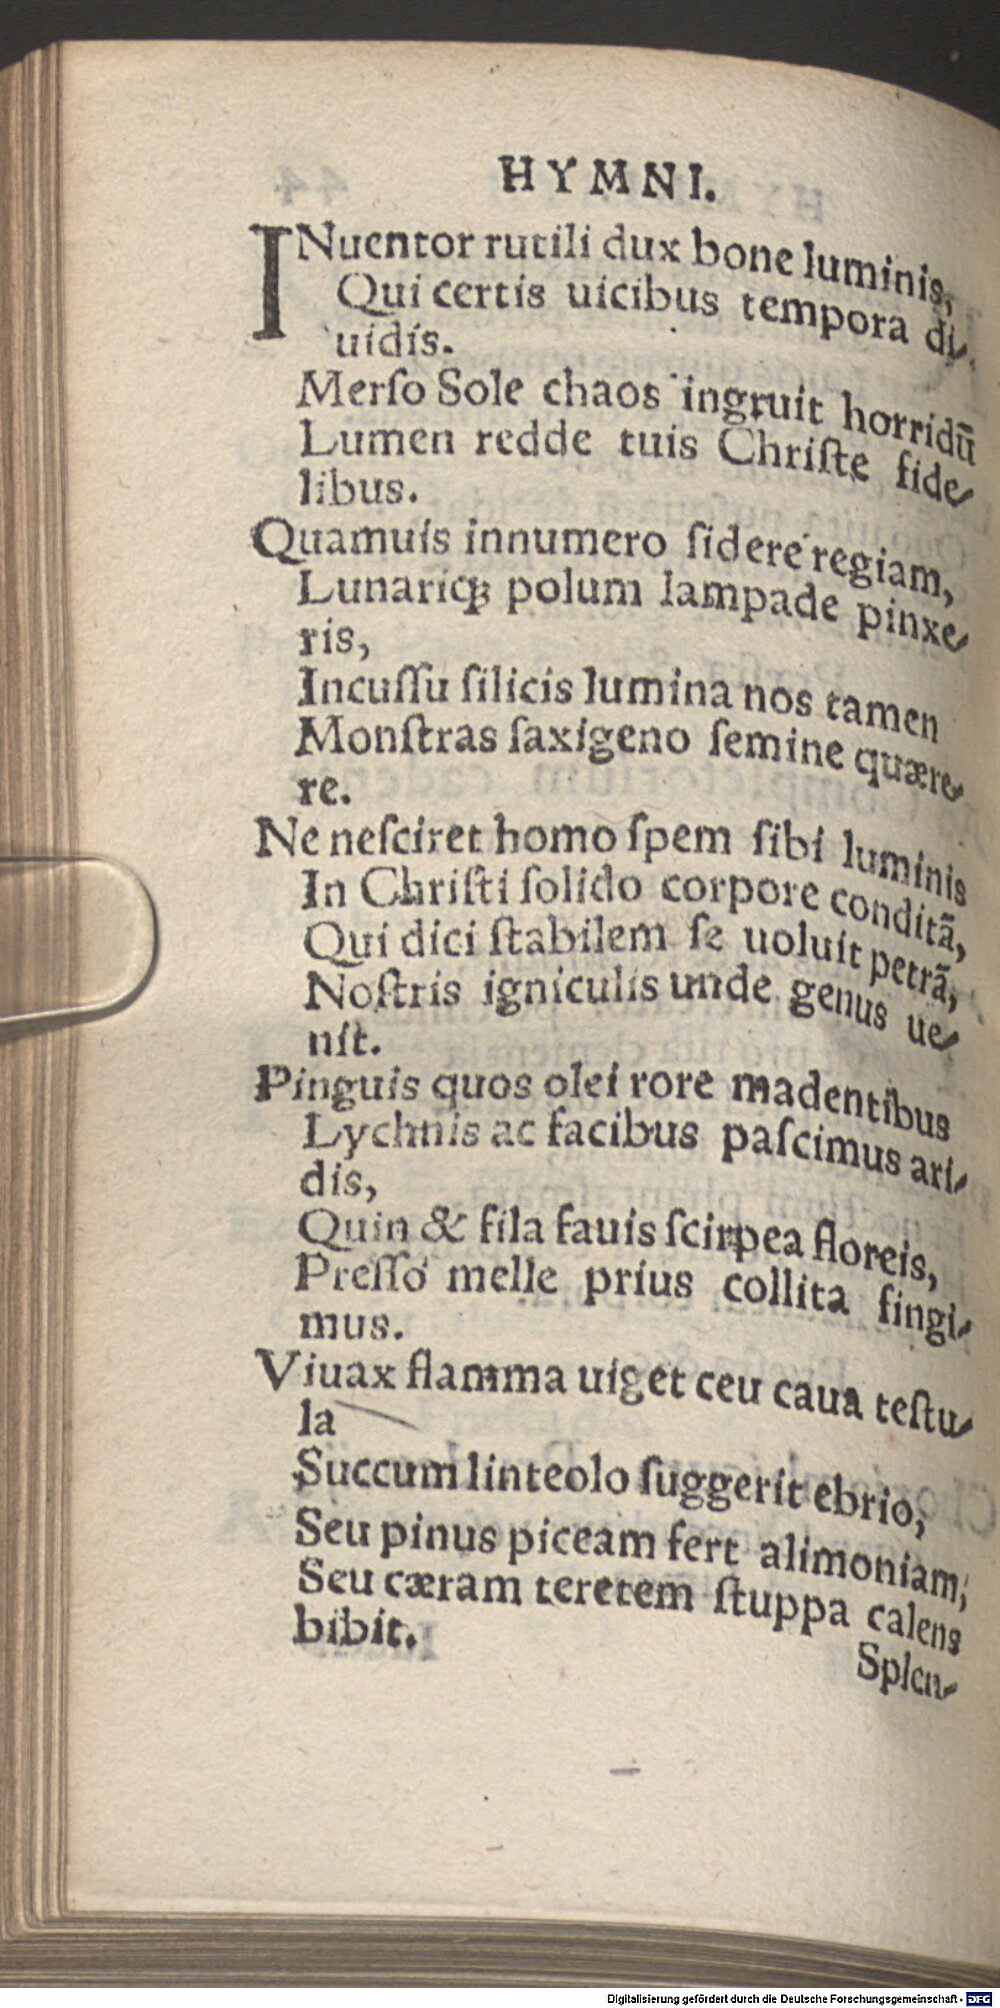 HYMNI.
INuentor rutili dux bone luminis,
Qui certis uicibus tempora di-
uidis.
Merſo Sole chaos ingruit horridū
Lumen redde tuis Chriſte fide-
libus.
Quamuis innumero ſidere regiam,
Lunariq; polum lampade pinxe-
ris,
Incuſſu ſilicis lumina nos tamen
Monſtras ſaxigeno ſemine quære-
re.
Ne neſciret homo ſpem ſibi luminis
In Chriſti ſolido corpore conditā,
Qui dici ſtabilem ſe uoluit petrā,
Noſtris igniculis unde genus ue-
nit.
Pinguis quos olei rore madentibus
Lychnis ac facibus paſcimus ari-
dis,
Quin & fila fauis ſcirpea floreis,
Preſſo melle prius collita fingi-
mus.
Viuax flamma uiget ceu caua teſtu-
la
Succum linteolo ſuggerit ebrio,
Seu pinus piceam fert alimoniam,
Seu cæram teretem ſtuppa calens
bibit.
Splen-
Digitalisierung gefördert durch die Deutsche Forschungsgemeinschaft - DFG